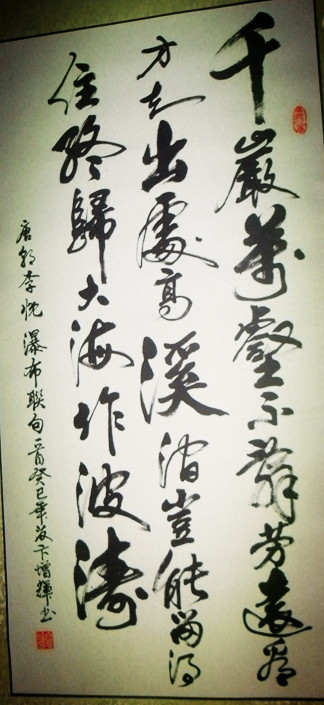 千巖萬壑不辭劳遠看
方知出處高溪澗豈能留得
住終歸大海作波濤
唐朝李忱瀑布聯句一首癸巳年卞增輝書